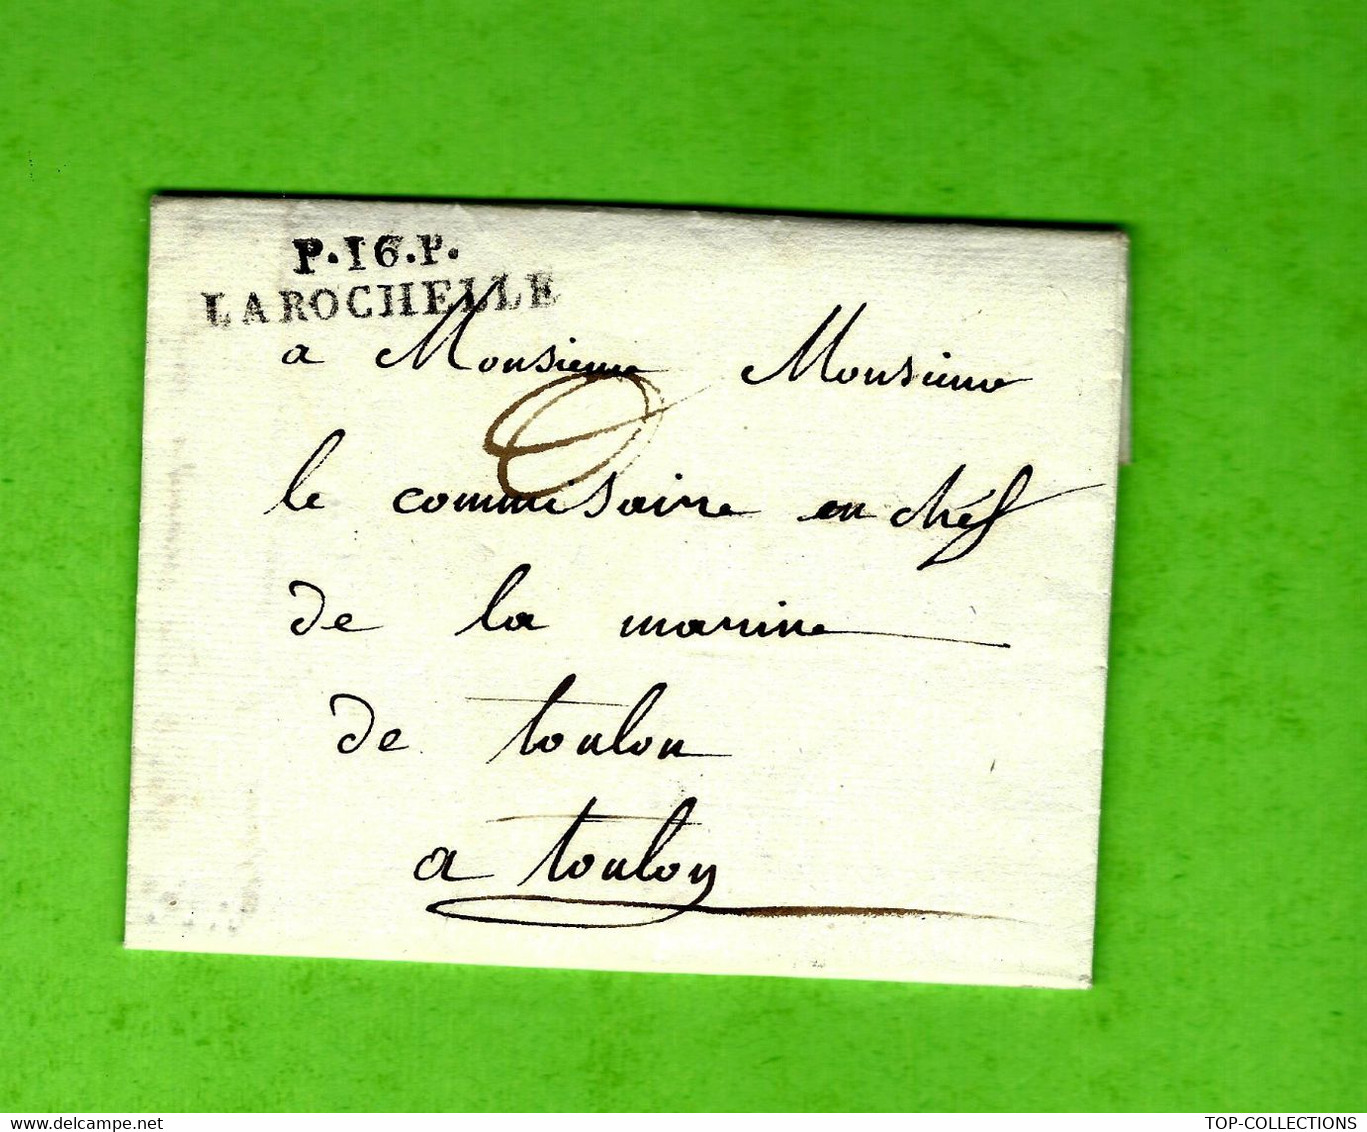 P.16.P.
LAROCHELLE
a Monsieur Monsieur
le commisaire en chef
de la marine
de toulon
a toulon
TOP-COLLECTIONS